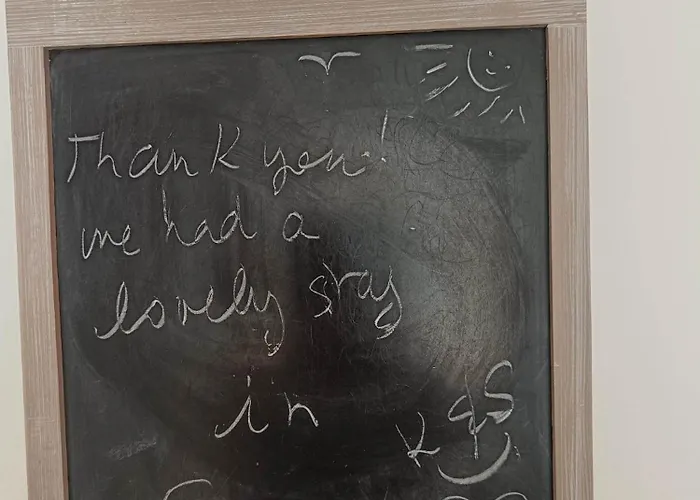 Thank you!
we had a
lovely stay
in